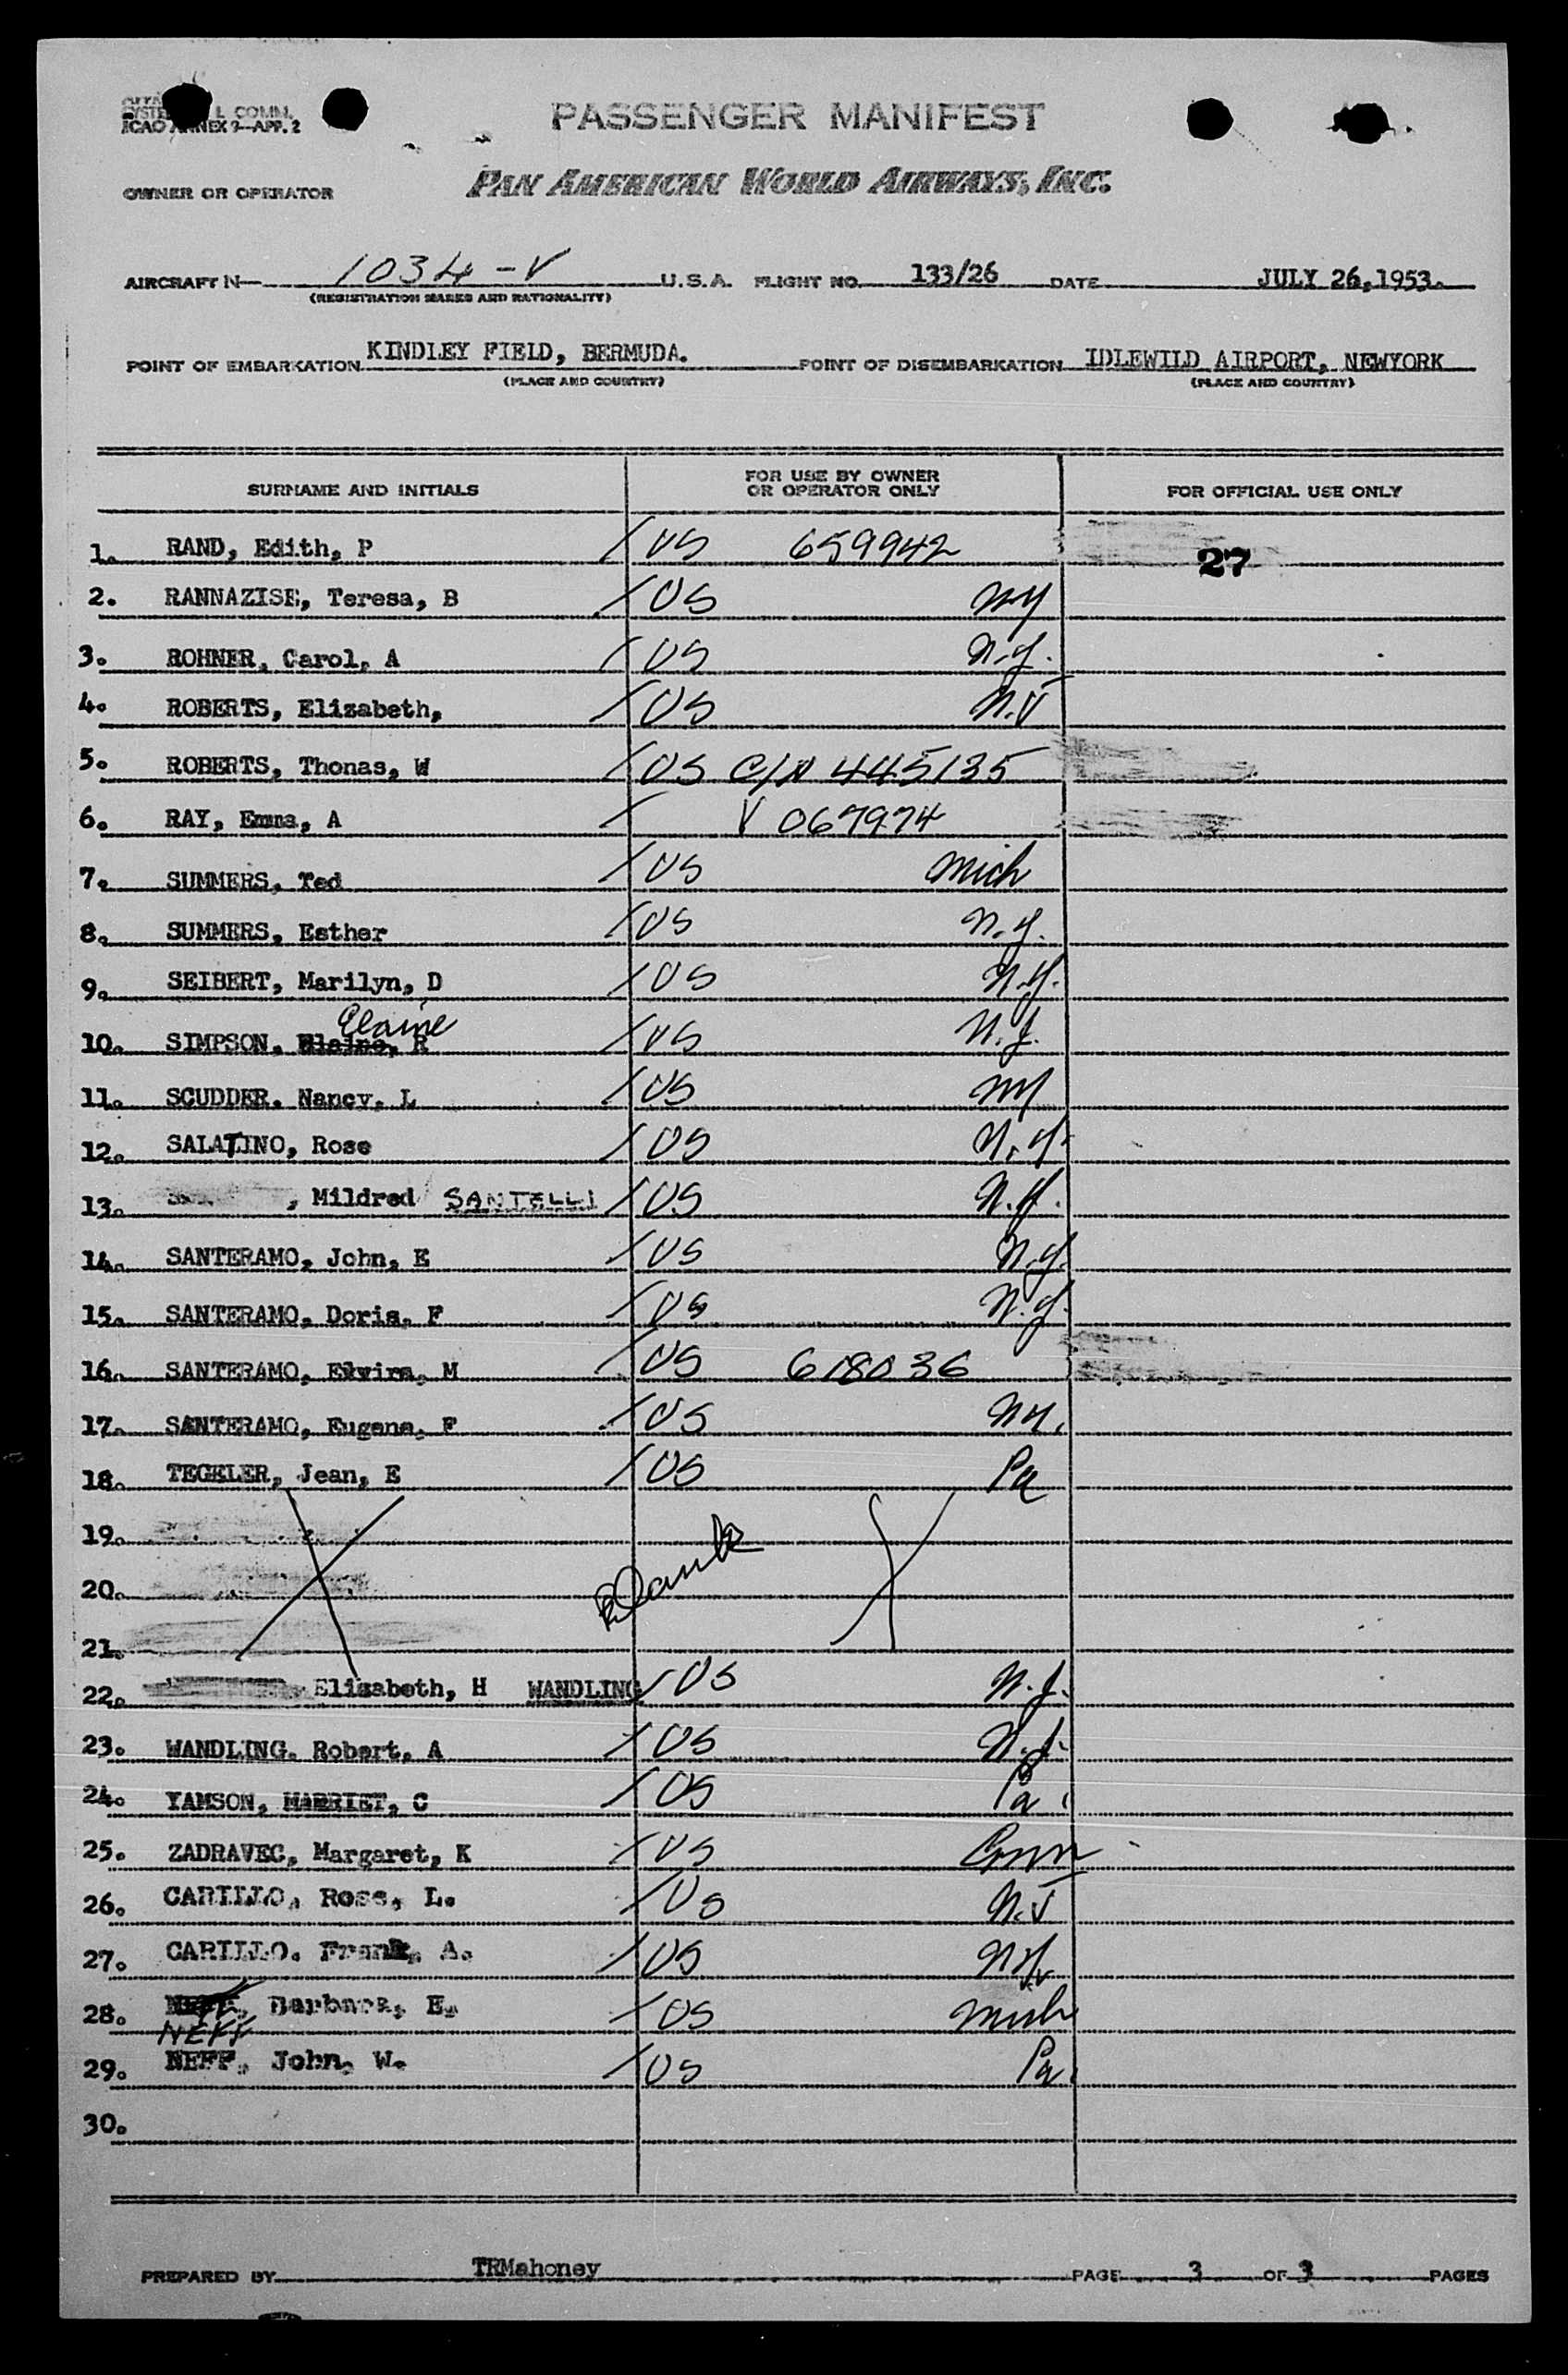 ICAO ANNEX 9—APP. 2
PASSENGER MANIFEST
OWNER OR OPERATOR PAN AMERICAN WORLD AIRWAYS, INC.
AIRCRAFT N— 1034-V U.S.A. FLIGHT NO. 133/26 DATE JULY 26,1953.
(REGISTRATION MARKS AND NATIONALITY)
POINT OF EMBARKATION KINDLEY FIELD, BERMUDA. POINT OF DISEMBARKATION IDLEWILD AIRPORT, NEWYORK
(PLACE AND COUNTRY) (PLACE AND COUNTRY)
SURNAME AND INITIALS FOR USE BY OWNER OR OPERATOR ONLY FOR OFFICIAL USE ONLY
1. RAND, Edith, P / US 659942 27
2. RANNAZISE, Teresa, B / US NY
3. ROHNER, Carol, A / US N.J.
4. ROBERTS, Elizabeth, / US N.J
5. ROBERTS, Thonas, W / US C/N 445135
6. RAY, Emma, A / V 067974
7. SUMMERS, Ted / US Mich
8. SUMMERS, Esther / US N.Y.
9. SEIBERT, Marilyn, D / US N.Y.
Elaine
10. SIMPSON, Elaine, R / US N.J.
11. SCUDDER, Nancy, L / US NY
12. SALATINO, Rose / US N.Y.
13. , Mildred SANTELLI / US N.Y.
14. SANTERAMO, John, E / US N.Y.
15. SANTERAMO, Doris, F / US N.Y.
16. SANTERAMO, Elvira, M / US 618036
17. SANTERAMO, Eugene, F / US NY.
18. TEGELER, Jean, E / US Pa
19.
20. Blank
21.
22. Elizabeth, H WANDLING / US N.J.
23. WANDLING, Robert, A / US N.J.
24. YAMSON, HARRIET, C / US Pa
25. ZADRAVEC, Margaret, K / US Conn
26. CARILLO, Rose, L. / US N.J
27. CARILLO, Frank, A. / US NY
28. NEFF, Barbara, E. / US Mich
NEFF
29. NEFF, John, W. / US Pa.
30.
PREPARED BY TRMahoney PAGE 3 OF 3 PAGES